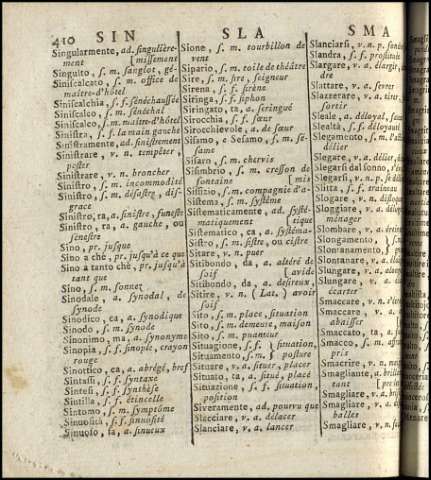 410 SIN SLA SMA
Singularmente, ad. singulière-
ment
Singulto, s. m. sanglot, gé-
[missement
Siniscalcato, s. m. office de
maître-d'hôtel
Siniscalchia, s. f. sénéchaussée
Siniscalco, s. m. sénéchal
Siniscalco, s. m. maître-d'hôtel
Sinistra, s. f. la main gauche
Sinistramente, ad. sinistrement
Sinistrare, v. n. tempêter,
pester
Sinistrare, v. n. broncher
Sinistro, s. m. incommodité
Sinistro, s. m. désastre, dis-
grace
Sinistro, ra, a. sinistre, funeste
Sinistro, ra, a. gauche, ou
senestre
Sino, pr. jusque
Sino a chè, pr. jusqu'à ce que
Sino a tanto chè, pr. jusqu'à
tant que
Sino, s. m. sonnez
Sinodale, a. synodal, de
synode
Sinodico, ca, a. synodique
Sinodo, s. m. synode
Sinonimo, ma, a. synonyme
Sinopia, s. f. sinople, crayon
rouge
Sinottico, ca, a. abrégé, bref
Sintassi, s. f. syntaxe
Sintesi, s. f. synthèse
Sintilla, s. f. étincelle
Sintomo, s. m. symptôme
Sinuosità, s. f. sinuosité
Sinuoso, sa, a. sinueux
Sione, s. m. tourbillon de
vent
Sipario, s. m. toile de théâtre
Sire, s. m. sire, seigneur
Sirena, s. f. sirène
Siringa, s. f. siphon
Siringato, ta, a. seringué
Sirocchia, s. f. sœur
Sirocchievole, a. de sœur
Sisamo, e Sesamo, s. m. sé-
same
Sisaro, s. m. chervis
Sisimbrio, s. m. cresson de
fontaine
Sissizio, s. m. compagnie d'a-
[mis
Sistema, s. m. système
Sistematicamente, ad. systé-
matiquement
Sistematico, ca, a. systéma-
[tique
Sistro, s. m. sistre, ou cistre
Sitare, v. n. puer
Sitibondo, da, a. altéré de
soif
Sitibondo, da, a. desireux,
[avide
Sitire, v. n. (Lat.) avoir
soif
Sito, s. m. place, situation
Sito, s. m. demeure, maison
Sito, s. m. puanteur
Situagione, s. f. } situation,
Situamento, s. m. } posture
Situare, v. a. situer, placer
Situato, ta, a. situé, placé
Situazione, s. f. situation,
position
Siveramente, ad. pourvu que
Slacciare, v. a. délacer
Slanciare, v. a. lancer
Slanciarsi, v. n. p.
Slandra, s. f. prostituée
Slargare, v. a. élargir,
dre
Slattare, v. a. sevrer
Slazzerare, v. a. tirer,
sortir
Sleale, a. déloyal,
Slealtà, s. f. déloyauté
Slegamento, s. m.
délier
Slegare, v. a. délier,
Slegarsi dal sonno,
Slegarsi, v. n. p.
Slitta, s. f. traineau
Slogare, v. a. disloquer
Sloggiare, v. a. déloger,
ménager
Slombare, v. a. éreinter
Slongamento,
Slontanamento,
Slungare, v. a. alonger
Slungare, v. a.
écarter
Smaccare, v. n.
Smaccare, v. a.
abaisser
Smaccato, ta, a.
Smacco, s. m.
pris
Smacrire, v. n.
Smagliante, a.
tant
Smagliare, v. a.
Smagliare, v. a.
balles
Smagliare, v. n.